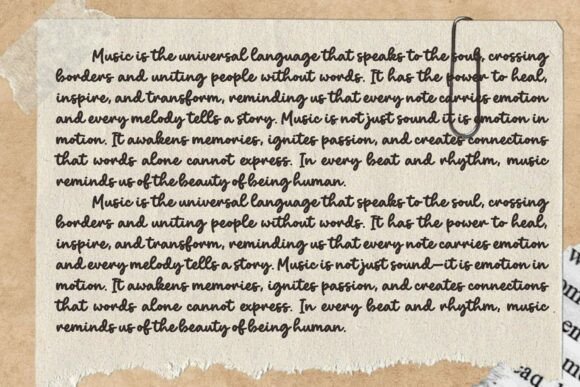 Music is the universal language that speaks to the soul, crossing
borders and uniting people without words. It has the power to heal,
inspire, and transform, reminding us that every note carries emotion
and every melody tells a story. Music is not just sound it is emotion in
motion. It awakens memories, ignites passion, and creates connections
that words alone cannot express. In every beat and rhythm, music
reminds us of the beauty of being human.
Music is the universal language that speaks to the soul, crossing
borders and uniting people without words. It has the power to heal,
inspire, and transform, reminding us that every note carries emotion
and every melody tells a story. Music is not just sound—it is emotion in
motion. It awakens memories, ignites passion, and creates connections
that words alone cannot express. In every beat and rhythm, music
reminds us of the beauty of being human.